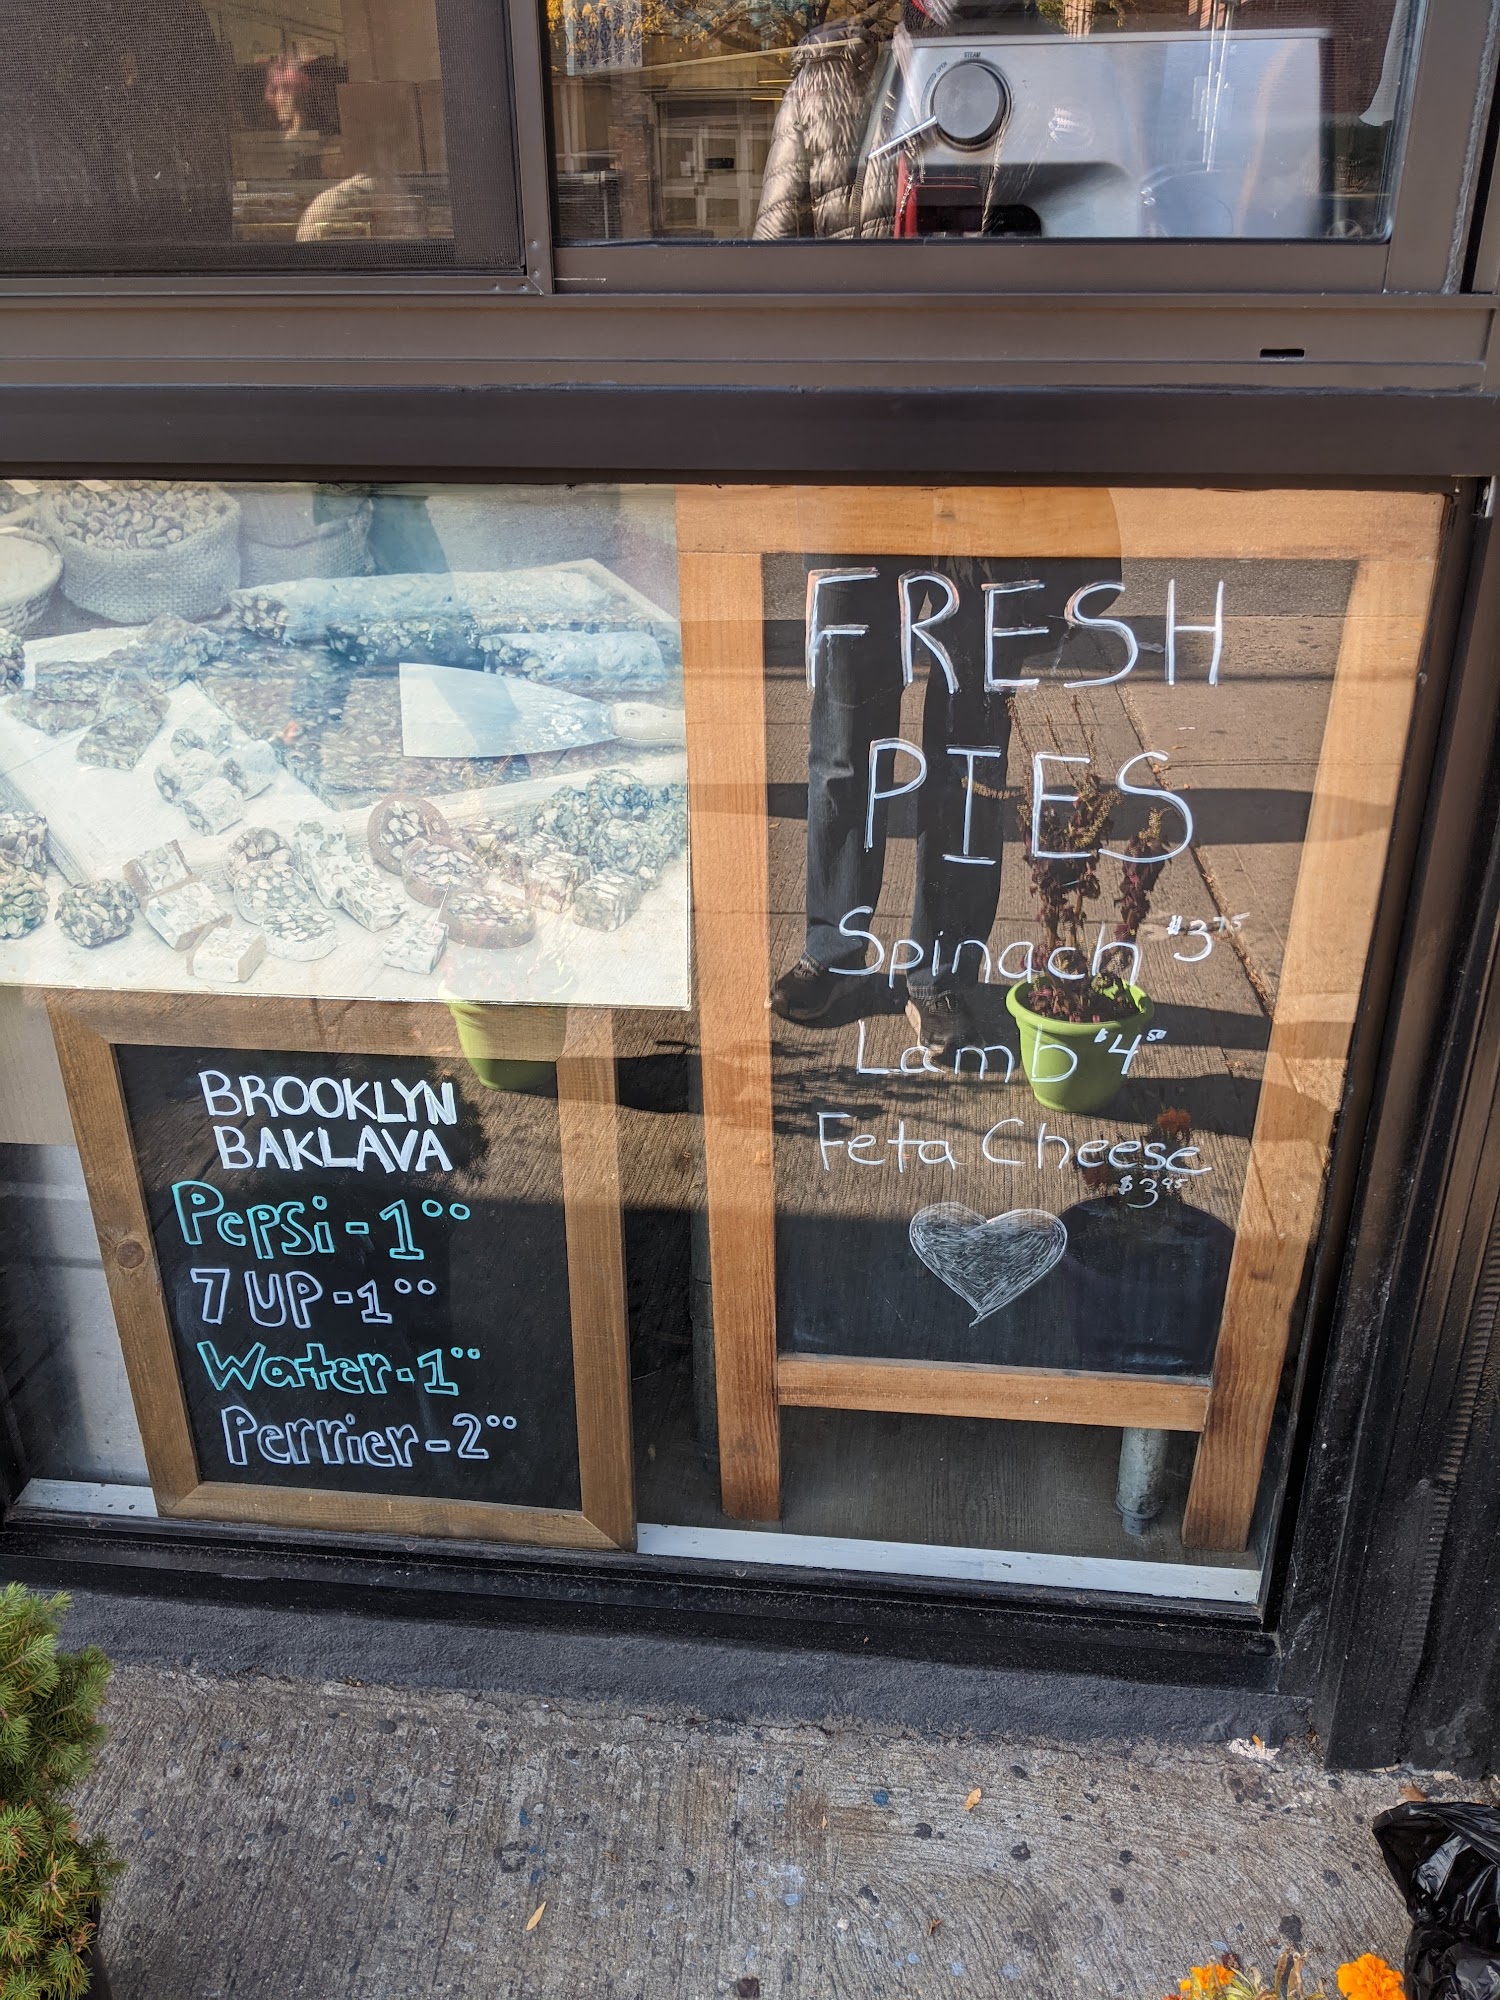 STEAM
FRESH
PIES
Spinach $3.75
Lamb $4.50
Feta Cheese
$3.95
BROOKLYN
BAKLAVA
Pepsi - 1.00
7 UP - 1.00
Water - 1.00
Perrier - 2.00